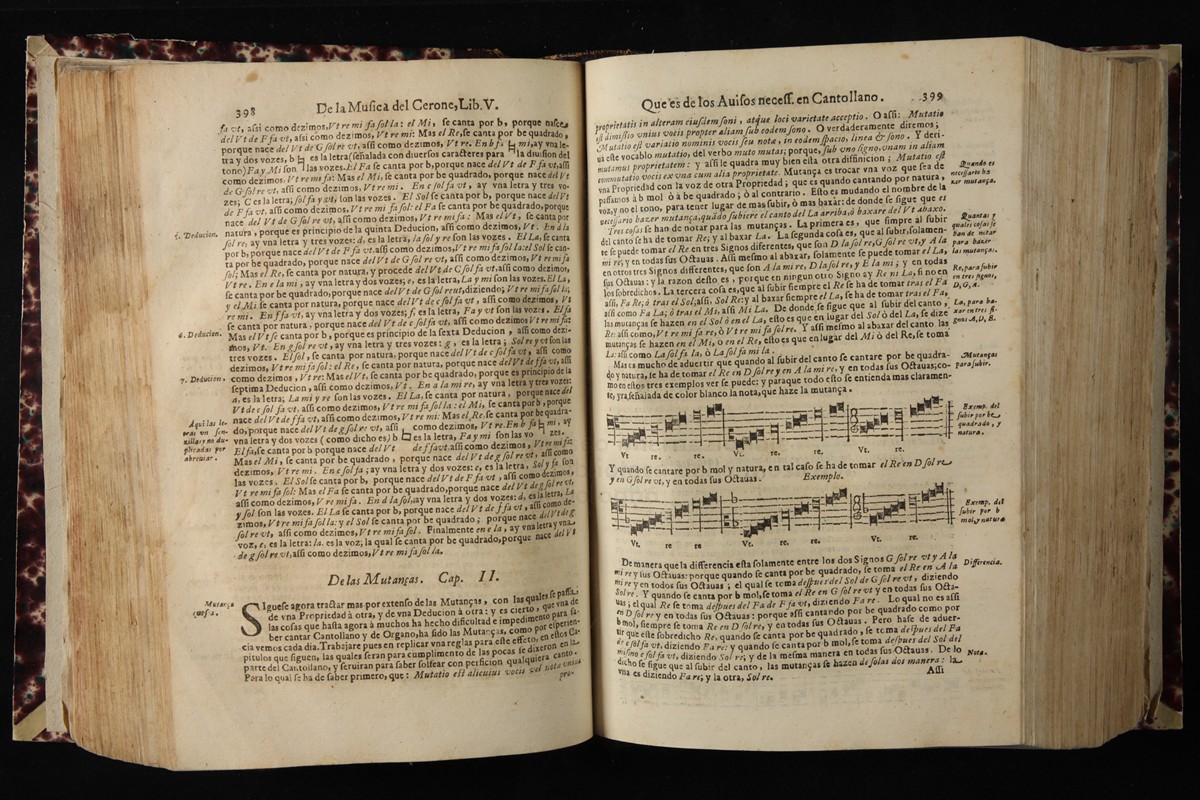 398
De la Musica del Cerone, Lib. V.
fa vt, assi como dezimos, Vt re mi fa sol la: el Mi, se canta por b, porque nasce
del Vt de F fa vt, assi como dezimos, Vt re mi: Mas el Re, se canta por b quadrado,
porque nace del Vt de G sol re vt, assi como dezimos, Vt re. En b fa ♮ mi, ay vna le-
tra y dos vozes, b ♮ es la letra (señalada con diuersos caracteres para la diuision del
tono) Fa y Mi son las vozes. El Fa se canta por b, porque nace del Vt de F fa vt, assi
como dezimos. Vt re mi fa: Mas el Mi, se canta por b quadrado, porque nace del Vt
de G sol re vt, assi como dezimos, Vt re mi. En c sol fa vt, ay vna letra y tres vo-
zes; C es la letra; sol fa y vt, son las vozes. El Sol se canta por b, porque nace del Vt
de F fa vt, assi como dezimos, Vt re mi fa sol: el Fa se canta por b quadrado, porque
nace del Vt de G sol re vt, assi como dezimos, Vt re mi fa: Mas el Vt, se canta por
natura, porque es principio de la quinta Deducion, assi como dezimos, Vt. En d la
5. Deducion.
sol re, ay vna letra y tres vozes: d, es la letra, la sol y re son las vozes. El La, se canta
por b, porque nace del Vt de F fa vt. assi como dezimos, Vt re mi fa sol la: el Sol se can-
ta por be quadrado, porque nace del Vt de G sol re vt, assi como dezimos, Vt re mi fa
sol; Mas el Re, se canta por natura, y procede del Vt de C sol fa vt, assi como dezimos,
Vt re. En e la mi, ay vna letra y dos vozes; e, es la letra, La y mi son las vozes. El La,
se canta por b quadrado, porque nace del Vt de G sol re ut, diziendo; Vt re mi fa sol la;
y el Mi se canta por natura, porque nace del Vt de c sol fa vt, assi como dezimos, Vt
re mi. En f fa vt, ay vna letra y dos vozes; f, es la letra, Fa y vt son las vozes. El fa
se canta por natura, porque nace del Vt de c sol fa vt, assi como dezimos Vt re mi fa:
6. Deducion.
Mas el Vt se canta por b, porque es principio de la sexta Deducion, assi como dezi-
mos, Vt. En g sol re vt, ay vna letra y tres vozes: g, es la letra; Sol re y vt son las
tres vozes. El sol, se canta por natura, porque nace del Vt de c sol fa vt, assi como
dezimos, Vt re mi fa sol: el Re, se canta por natura, porque nace del Vt de f fa vt, assi
7. Deducion.
como dezimos, Vt re: Mas el Vt, se canta por b quadrado, porque es principio de la
septima Deducion, assi como dezimos, Vt. En a la mi re, ay vna letra y tres vozes:
a, es la letra; La mi y re son las vozes. El La, se canta por natura, porque nace del
Vt de c sol fa vt, assi como dezimos, Vt re mi fa sol la: el Mi, se canta por b, porque
Aqui las le-
tras vn sen-
zillas y no du-
plicadas por
abreuiar.
nace del Vt de f fa vt, assi como dezimos, Vt re mi: Mas el Re, se canta por be quadra-
do, porque nace del Vt de g sol re vt, assi como dezimos, Vt re. En b fa ♮ mi, ay
vna letra y dos vozes (como dicho es) b ♮ es la letra, Fa y mi son las vo zes.
El fa, se canta por b porque nace del Vt de f fa vt. assi como dezimos, Vt re mi fa:
Mas el Mi, se canta por be quadrado, porque nace del Vt de g sol re vt, assi como
dezimos, Vt re mi. En c sol fa; ay vna letra y dos vozes: c, es la letra, Sol y fa son
las vozes. El Sol se canta por b, porque nace del Vt de F fa vt, assi como dezimos,
Vt re mi fa sol: Mas el Fa se canta por b quadrado, porque nace del Vt de g sol re vt,
assi como dezimos, Vt re mi fa. En d la sol, ay vna letra y dos vozes: d, es la letra, La
y sol son las vozes. El La se canta por b, porque nace del Vt de f fa vt, assi como de-
zimos, Vt re mi fa sol la: y el Sol se canta por b quadrado; porque nace del Vt de g
sol re vt, assi como dezimos, Vt re mi fa sol. Finalmente en e la, ay vna letra y vna
voz, e. es la letra: la. es la voz, la qual se canta por b quadrado, porque nace del Vt
de g sol re vt, assi como dezimos, Vt re mi fa sol la.
De las Mutanças. Cap. II.
Mutança
que sea.
Siguese agora tractar mas por extenso de las Mutanças, con las quales se passa
de vna Propriedad à otra, y de vna Deducion à otra: y es cierto, que vna de
las cosas que hasta agora à muchos ha hecho dificultad e impedimento para sa-
ber cantar Cantollano y de Organo, ha sido las Mutanças, como por esperien-
cia vemos cada dia. Trabajare pues en replicar vna reglas para este effeto, en estos Ca-
pitulos que siguen, las quales seran para cumplimento de las pocas se dixeron en la
parte del Cantollano, y seruiran para saber solfear con perficion qualquiera canto.
Para lo qual se ha de saber primero, que: Mutatio est alicuius vocis vel nota vnius
pro-
Que es de los Auisos necess. en Cantollano.
399
proprietatis in alteram eiusdem soni, atque loci varietate acceptio. O assi: Mutatio
est dimissio vnius vocis propter aliam sub eodem sono. O verdaderamente diremos;
Mutatio est variatio nominis vocis seu nota, in eodem spacio, linea & sono. Y deri-
ua este vocablo mutatio, del verbo muto mutas; porque, sub vno signo, vnam in aliam
mutamus proprietatem: y assi le quadra muy bien esta diffinicion; Mutatio est
commutatio vocis ex vna cum alia proprietate. Mutança es trocar vna voz que sea de
Quando es
necessario ha
zer mutança.
vna Propriedad con la voz de otra Propriedad; que es quando cantando por natura,
passamos à b mol ò à be quadrado; ò al contrario. Esto es mudando el nombre de la
voz, y no el tono, para tener lugar de mas subir, ò mas baxar: de donde se sigue que es
necessario hazer mutança, quãdo subiere el canto del La arriba, ò baxare del Vt abaxo.
Quantas y
quales cosas se
han de notar
para hazer
las mutanças.
Tres cosas se han de notar para las mutanças. La primera es, que simpre al subir
del canto se ha de tomar Re; y al baxar La. La segunda cosa es, que al subir, solamen-
te se puede tomar el Re en tres Signos diferentes, que son D la sol re, G sol re vt, y A la
mi re; y en todas sus Octauas. Assi mesmo al abaxar, solamente se puede tomar el La,
en otros tres Signos differentes, que son A la mi re, D la sol re, y E la mi; y en todas
Re, para subir
en tres signos,
D, G, A.
sus Octauas: y la razon desto es, porque en ningun otro Signo ay Re ni La, si no en
los sobredichos. La tercera cosa es, que al subir siempre el Re se ha de tomar tras el Fa
assi, Fa Re; ò tras el Sol, assi, Sol Re: y al baxar siempre el La, se ha de tomar tras el Fa,
La, para ba-
xar en tres si-
gnos A, D, E.
assi como Fa La; ò tras el Mi, assi Mi La. De donde se sigue que al subir del canto,
las mutanças se hazen en el Sol ò en el La, esto es que en lugar del Sol ò del La, se dize
Re: assi como, Vt re mi fa re, ò Vt re mi fa sol re. Y assi mesmo al abaxar del canto las
mutanças se hazen en el Mi, ò en el Re, esto es que en lugar del Mi ò del Re, se toma
La: assi como La sol fa la, ò La sol fa mi la.
Mutanças
para subir.
Mas es mucho de aduertir que quando al subir del canto se cantare por be quadra-
do y natura, se ha de tomar el Re en D sol re y en A la mi re, y en todas sus Octauas; co-
mo en estos tres exemplos ver se puede: y paraque todo esto se entienda mas claramen-
te, yra señalada de color blanco la nota, que haze la mutança.
Exemp. del
subir por be
quadrado, y
natura.
Vt re. re. Vt. re. re. Vt. re.
Y quando se cantare por b mol y natura, en tal caso se ha de tomar el Re en D sol re
y en G sol re vt, y en todas sus Octauas. Exemplo.
Exemp. del
subir por b
mol, y natura
Vt. re re Vt. re re. Vt. re.
De manera que la differencia esta solamente entre los dos Signos G sol re vt y A la
Differencia.
mi re y sus Octauas: porque quando se canta por be quadrado, se toma el Re en A la
mi re y en todos sus Octauas; el qual se toma despues del Sol de G sol re vt, diziendo
Sol re. Y quando se canta por b mol, se toma el Re en G sol re vt y en todas sus Octa-
uas; el qual Re se toma despues del Fa de F fa vt, diziendo Fa re. Lo qual no es assi
en D sol re y en todas sus Octauas: porque assi cantando por be quadrado como por
b mol, siempre se toma Re en D sol re, y en todas sus Octauas. Pero hase de aduer-
tir que este sobredicho Re. quando se canta por be quadrado, se toma despues del Fa
de c sol fa vt, diziendo Fa re: y quando se canta por b mol, se toma despues del Sol del
mismo c sol fa vt, diziendo Sol re; y de la mesma manera en todas sus Octauas. De lo
Nota.
dicho se sigue que al subir del canto, las mutanças se hazen de solas dos manera: la
vna es diziendo Fa re; y la otra, Sol re.
Assi